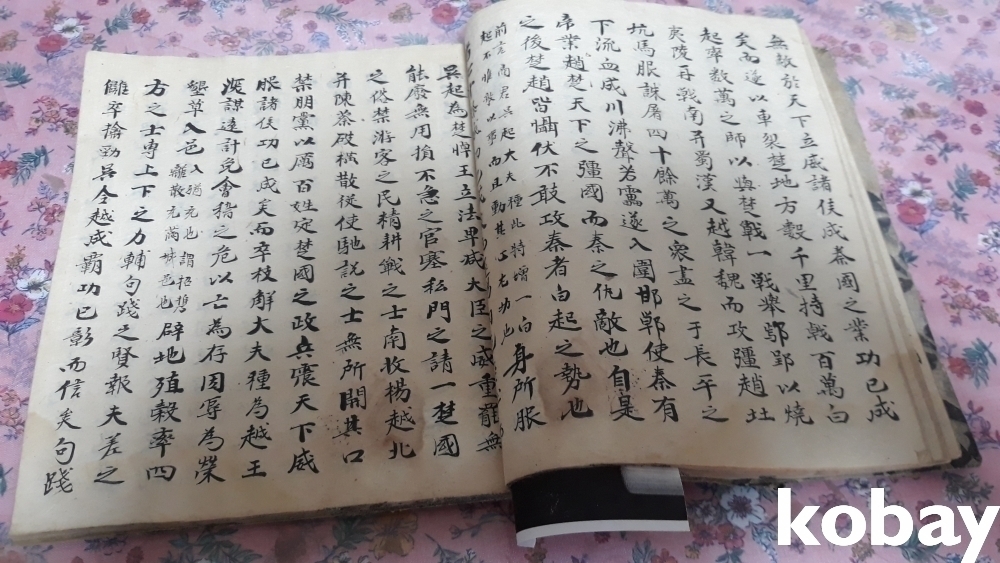 無敵於天下立威諸侯成秦國之業功已成
矣而遂以車裂楚地方數千里持戟百萬白
起率數萬之師以與楚戰一戰舉鄢郢以燒
夷陵再戰南幷蜀漢又越韓魏而攻彊趙北
坑馬服誅屠四十餘萬之衆盡之于長平之
下流血成川沸聲若雷遂入圍邯鄲使秦有
帝業趙楚天下之彊國而秦之仇敵也自是
之後楚趙皆懾伏不敢攻秦者白起之勢也
前言商君吳起大夫種此特增一白
起不惟 以 而且動其 尤功也
身所服
吳起爲楚悼王立法卑减大臣之威重罷無
能廢無用損不急之官塞私門之請一楚國
之俗禁游客之民精耕戰之士南收楊越北
幷陳蔡破橫散從使馳說之士無所開其口
禁朋黨以厲百姓定楚國之政兵震天下威
服諸侯功已成矣而卒枝解大夫種爲越王
深謀遠計免會稽之危以亡爲存因辱爲榮
墾草入邑
入 充也謂招携
離散充滿城邑也
辟地殖穀率四
方之士專上下之力輔句踐之賢報夫差之
讎卒擒勁吳令越成霸功已彰而信矣句踐
kobay